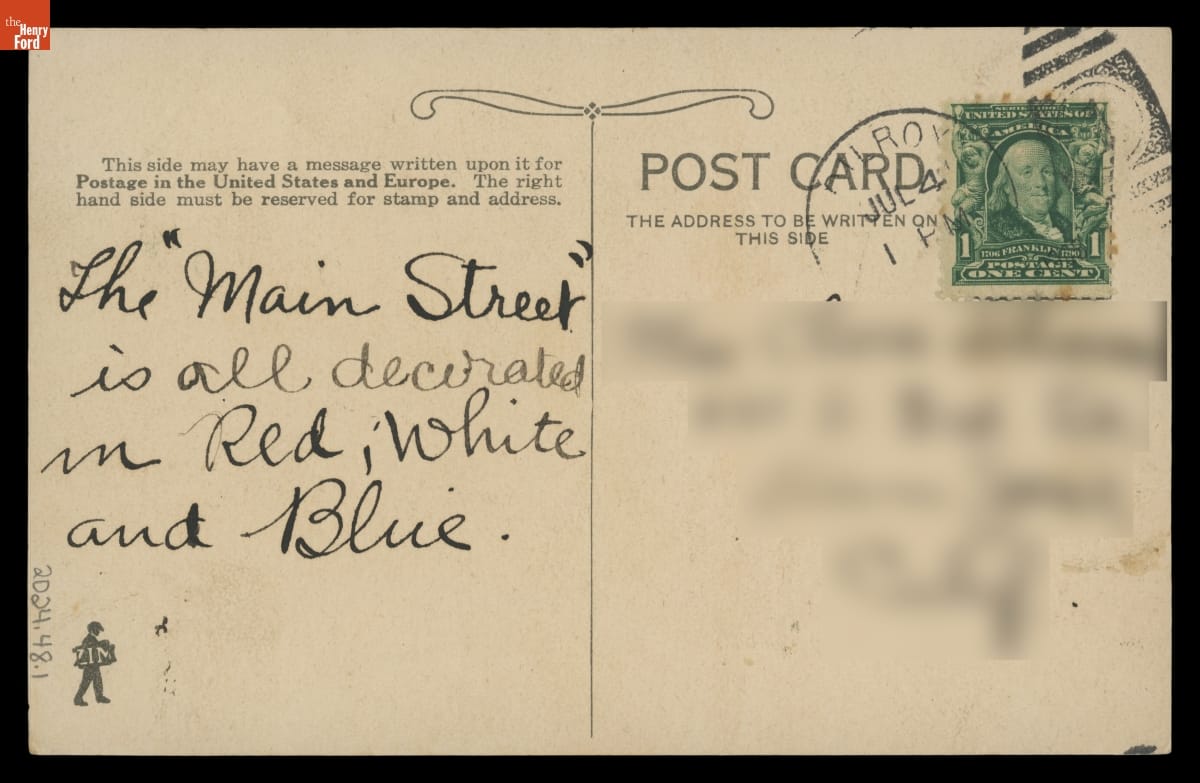 the
Henry
Ford
This side may have a message written upon it for
Postage in the United States and Europe. The right
hand side must be reserved for stamp and address.
The "Main Street"
is all decorated
in Red, White
and Blue.
2024.48.1
ZIM
POST CARD
THE ADDRESS TO BE WRITTEN ON
THIS SIDE
JUL 4
1 PM
UNITED STATES OF
AMERICA
1 1706 FRANKLIN 1790 1
POSTAGE
ONE CENT